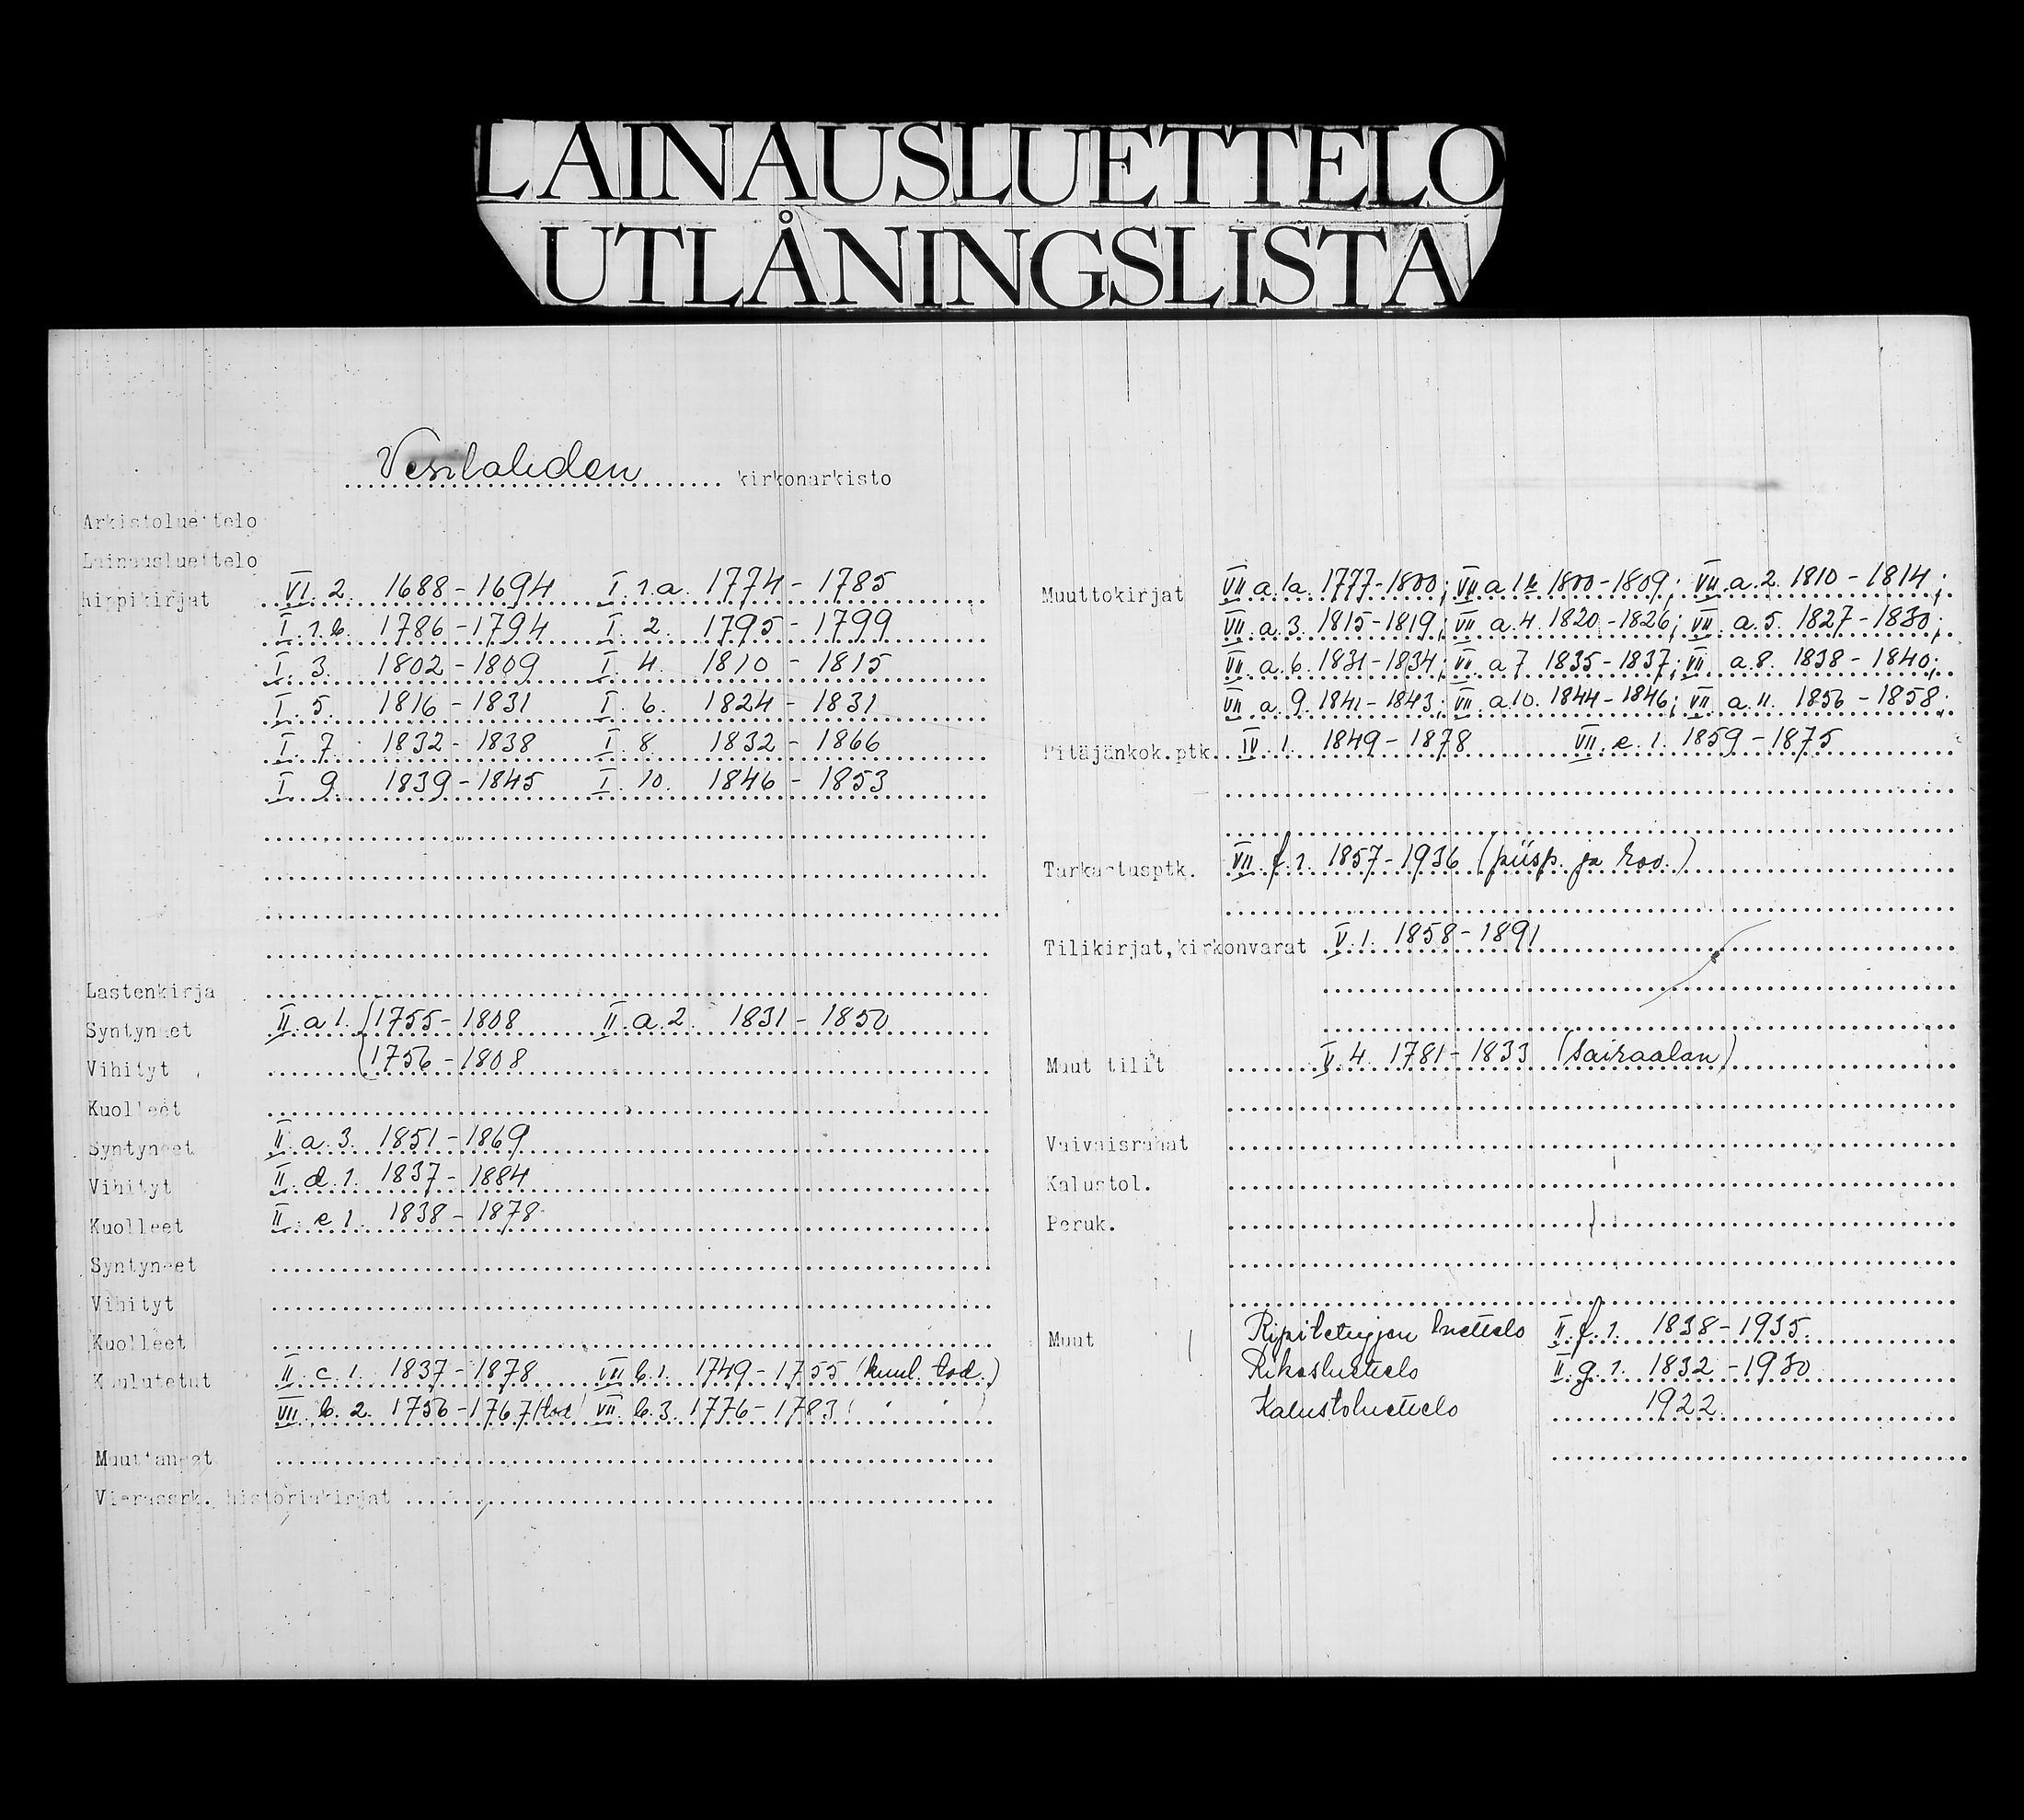 LAINAUSLUETTELO
UTLÅNINGSLISTA
Vesilahden kirkonarkisto
Arkistoluettelo
Lainausluettelo
Rippikirjat VI. 2. 1688-1694 I. 1.a. 1774-1785
I. 1.b. 1786-1794 I. 2. 1795-1799
I. 3. 1802-1809 I. 4. 1810-1815
I. 5. 1816-1831 I. 6. 1824-1831
I. 7. 1832-1838 I. 8. 1832-1866
I. 9. 1839-1845 I. 10. 1846-1853
Lastenkirja
Syntyneet II. a 1. (1755-1808 II. a. 2. 1831-1850
Vihityt (1756-1808
Kuolleet
Syntyneet II. a. 3. 1851-1869
Vihityt II. d. 1. 1837-1884
Kuolleet II. e 1. 1838-1878
Syntyneet
Vihityt
Kuolleet
Kuulutetut II. c. 1. 1837-1878 VII b. 1. 1749-1755 (kuul. tod.)
VII. b. 2. 1756-1767 (tod VII. b. 3. 1776-1783
Muuttaneet
Vierassrk. historiakirjat
Muuttokirjat VII a. 1a. 1777-1800; VII a 1b 1800-1809; VII. a. 2. 1810-1814;
VII. a. 3. 1815-1819; VII a. 4. 1820-1826; VII. a. 5. 1827-1830;
VII. a. 6. 1831-1834; VII. a 7 1835-1837; VII. a. 8. 1838-1840;
VII. a. 9. 1841-1843; VII. a. 10. 1844-1846; VII a. 11. 1856-1858;
Pitäjänkok.ptk. IV. 1. 1849-1878 VII. e. 1. 1859-1875
Tarkastusptk. VII. f. 1. 1857-1936 (piisp. ja rov.)
Tilikirjat, kirkonvarat V. 1. 1858-1891
Muut tilit V. 4. 1781-1833 (sairaalan)
Vaivaisrahat
Kalustol.
Peruk.
Muut Ripiltettyjen luettelo II. f. 1. 1838-1935.
Rikosluettelo II. g. 1. 1832-1930
Kalustoluettelo 1922